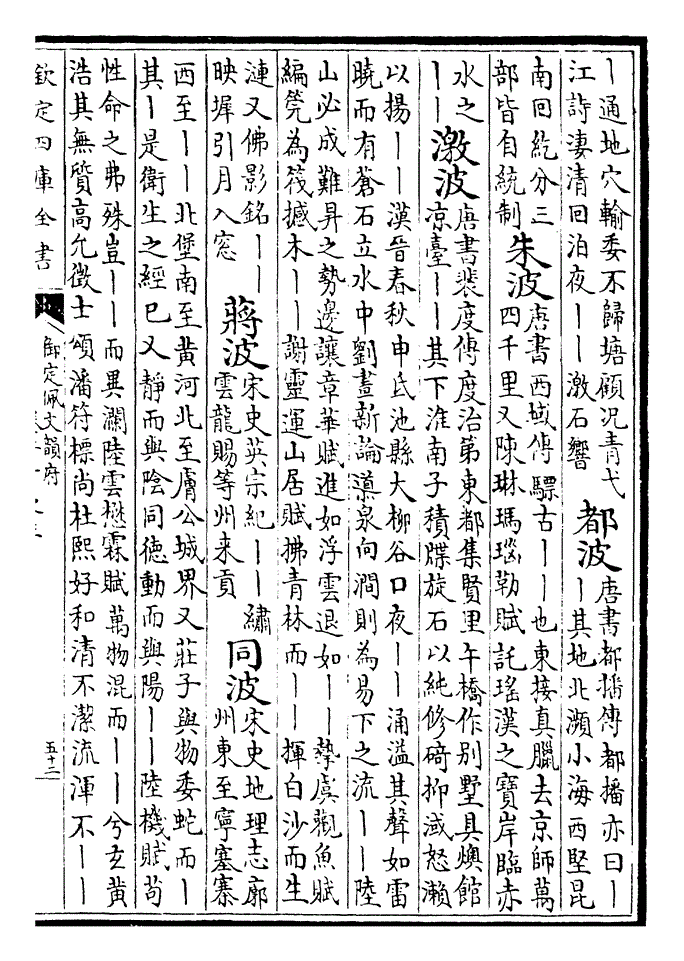 ｜通地穴輸委不歸塘顧况青弋
江詩淒清回泊夜｜｜激石響
都波
唐書都播傳都播亦曰｜
｜其地北瀕小海西堅昆
南回紇分三
部皆自統制
朱波
唐書西域傳驃古｜｜也東接真臘去京師萬
四千里又陳琳瑪瑙勒賦託瑤漢之寶岸臨赤
水之
｜｜
激波
唐書裴度傳度治第東都集賢里午橋作別墅具燠館
凉臺｜｜其下淮南子積牒旋石以純修碕抑減怒瀨
以揚｜｜漢晉春秋申氐池縣大柳谷口夜｜｜涌溢其聲如雷
曉而有蒼石立水中劉晝新論導泉向澗則為易下之流｜｜陸
山必成難昇之勢邊讓章華賦進如浮雲退如｜｜摯虞觀魚賦
編筦為筏撼木｜｜謝靈運山居賦拂青林而｜｜揮白沙而生
漣又佛影銘｜｜
映墀引月入窓
蔣波
宋史英宗紀｜｜繡
雲龍賜等州来貢
同波
宋史地理志廓
州東至寧塞寨
西至｜｜北堡南至黄河北至膚公城界又莊子與物委蛇而｜
其｜是衛生之經已又靜而與陰同德動而與陽｜｜陸機賦苟
性命之弗殊豈｜｜而異瀾陸雲懋霖賦萬物混而｜｜兮玄黄
浩其無質高允徵士頌潘符標尚杜熙好和清不潔流渾不｜｜
欽定四庫全書
御定佩文韻府
五十二